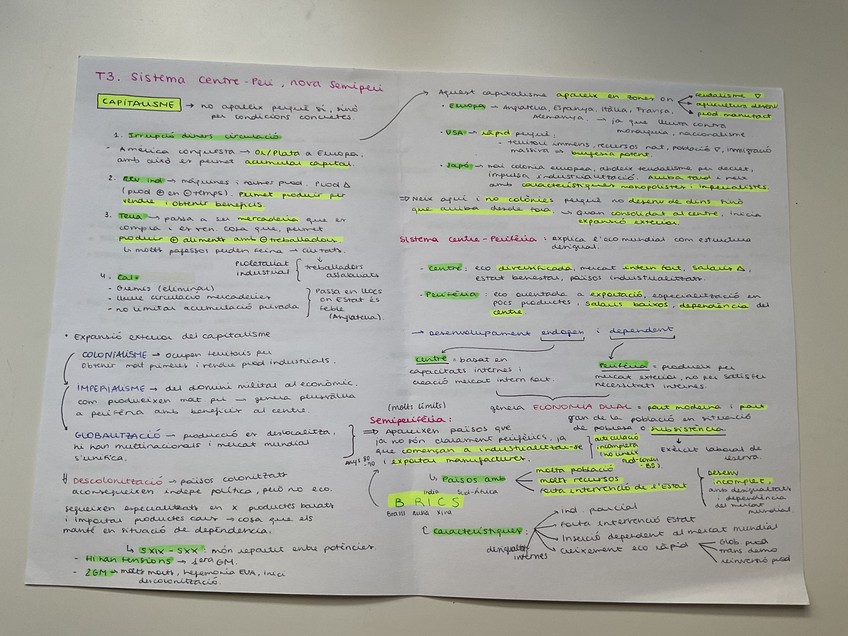 T3. Sistema Centre-Peri, nova Semiperi
CAPITALISME → no apareix perquè sí, sinó
per condicions concretes
1. Irrupció diners circulació
- Amèrica conquesta → Or/Plata a Europa,
amb això es permet acumular capital
2. Rev Ind → màquines i canvi prod. Prod Δ
(prod ⊕ en ⊖ temps). Permet produir per
vendre i obtenir beneficis.
3. Terra → passa a ser mercaderia que es
compra i es ven. Cosa que, permet
produir ⊕ aliments amb ⊖ treballadors.
↳ molts pagesos perden feina → ciutats.
proletariat
industrial { treballadors
assalariats
4. Calx
- Gremis (eliminar)
- lliure circulació mercaderies
- no limitar acumulació privada
} Passa en llocs
on Estat és
feble
(Anglaterra).
• Expansió exterior del capitalisme
COLONIALISME → ocupen territoris per
obtenir mat primeres i vendre prod industrials.
IMPERIALISME → del domini militar al econòmic.
com produeixen mat pri → genera plusvàlua
a perifèria amb benefici al centre.
GLOBALITZACIÓ → producció es deslocalitza,
hi han multinacionals i mercat mundial
s'unifica.
Descolonització → països colonitzats
aconsegueixen indepe política, però no eco.
segueixen especialitzats en x productes barats
i importar productes cars → cosa que els
manté en situació de dependència.
↳ SXIX - SXX món repartit entre potències.
- Hi han tensions → 1era GM.
- 2GM → molts morts, hegemonia EUA, inici
descolonització.
Aquest capitalisme apareix en zones on
feudalisme ▽
agricultura desenv
prod. manufact
• Europa → Anglaterra, Espanya, Itàlia, França,
Alemanya. → ja que lluita contra
monarquia, nacionalisme
• USA → ràpid perquè,
- territori immens, recursos nat, població ▽, immigració
massiva → burgesia potent.
• Japó → mai colònia europea, aboleix feudalisme per decret,
impulsa industrialització. Arriba tard i neix
amb característiques monopolistes i imperialistes
⇒ Neix aquí i no colònies perquè no desenv de dins sinó
que arriba desde fora ↳ quan consolidat al centre, inicia
expansió exterior.
Sistema centre-Perifèria : explica l'eco mundial com estructura
desigual.
- Centre: eco diversificada, mercat intern fort, salaris Δ,
estat benestar, països industrialitzats.
- Perifèria: eco orientada a exportació, especialització en
pocs productes, salaris baixos, dependència del
centre.
→ Desenvolupament endogen i dependent
Centre = basat en
capacitats internes i
creació mercat intern fort.
Perifèria = produeix per
mercat exterior, no per satisfer
necessitats internes.
genera ECONOMIA DUAL = part moderna i part
gran de la població en situació
de pobresa o subsistència.
↓
Exèrcit laboral de
reserva.
(molts límits)
Semiperifèria:
⇒ Apareixen països que
ja no són clarament perifèrics, ja
que començan a industrialitzar-se
i exportar manufactures.
Anys 80
90
articulació
incompleta
(no uneix
prod-cons
BS)
↳ Països amb
molta població
molts recursos
forta intervenció de l'Estat
Desenv
incomplet,
amb desigualtats
i dependència
del mercat
mundial.
India Sud-Àfrica
BRICS
Brasil Rússia Xina
Característiques:
Ind. parcial
Forta intervenció Estat
Inserció dependent al mercat mundial
Creixement eco ràpid
Glob prod
trans demo
reinversió prod
desigualtats
internes